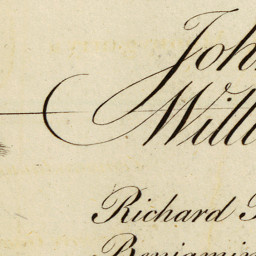 John
Will
Richard
Benjamin